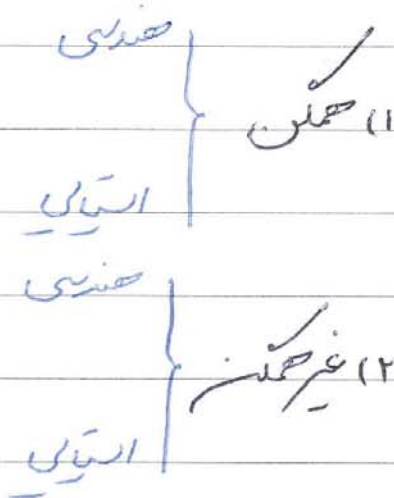 ۱) همگن
هندسی
استیایی
۲) غیرهمگن
هندسی
استیایی